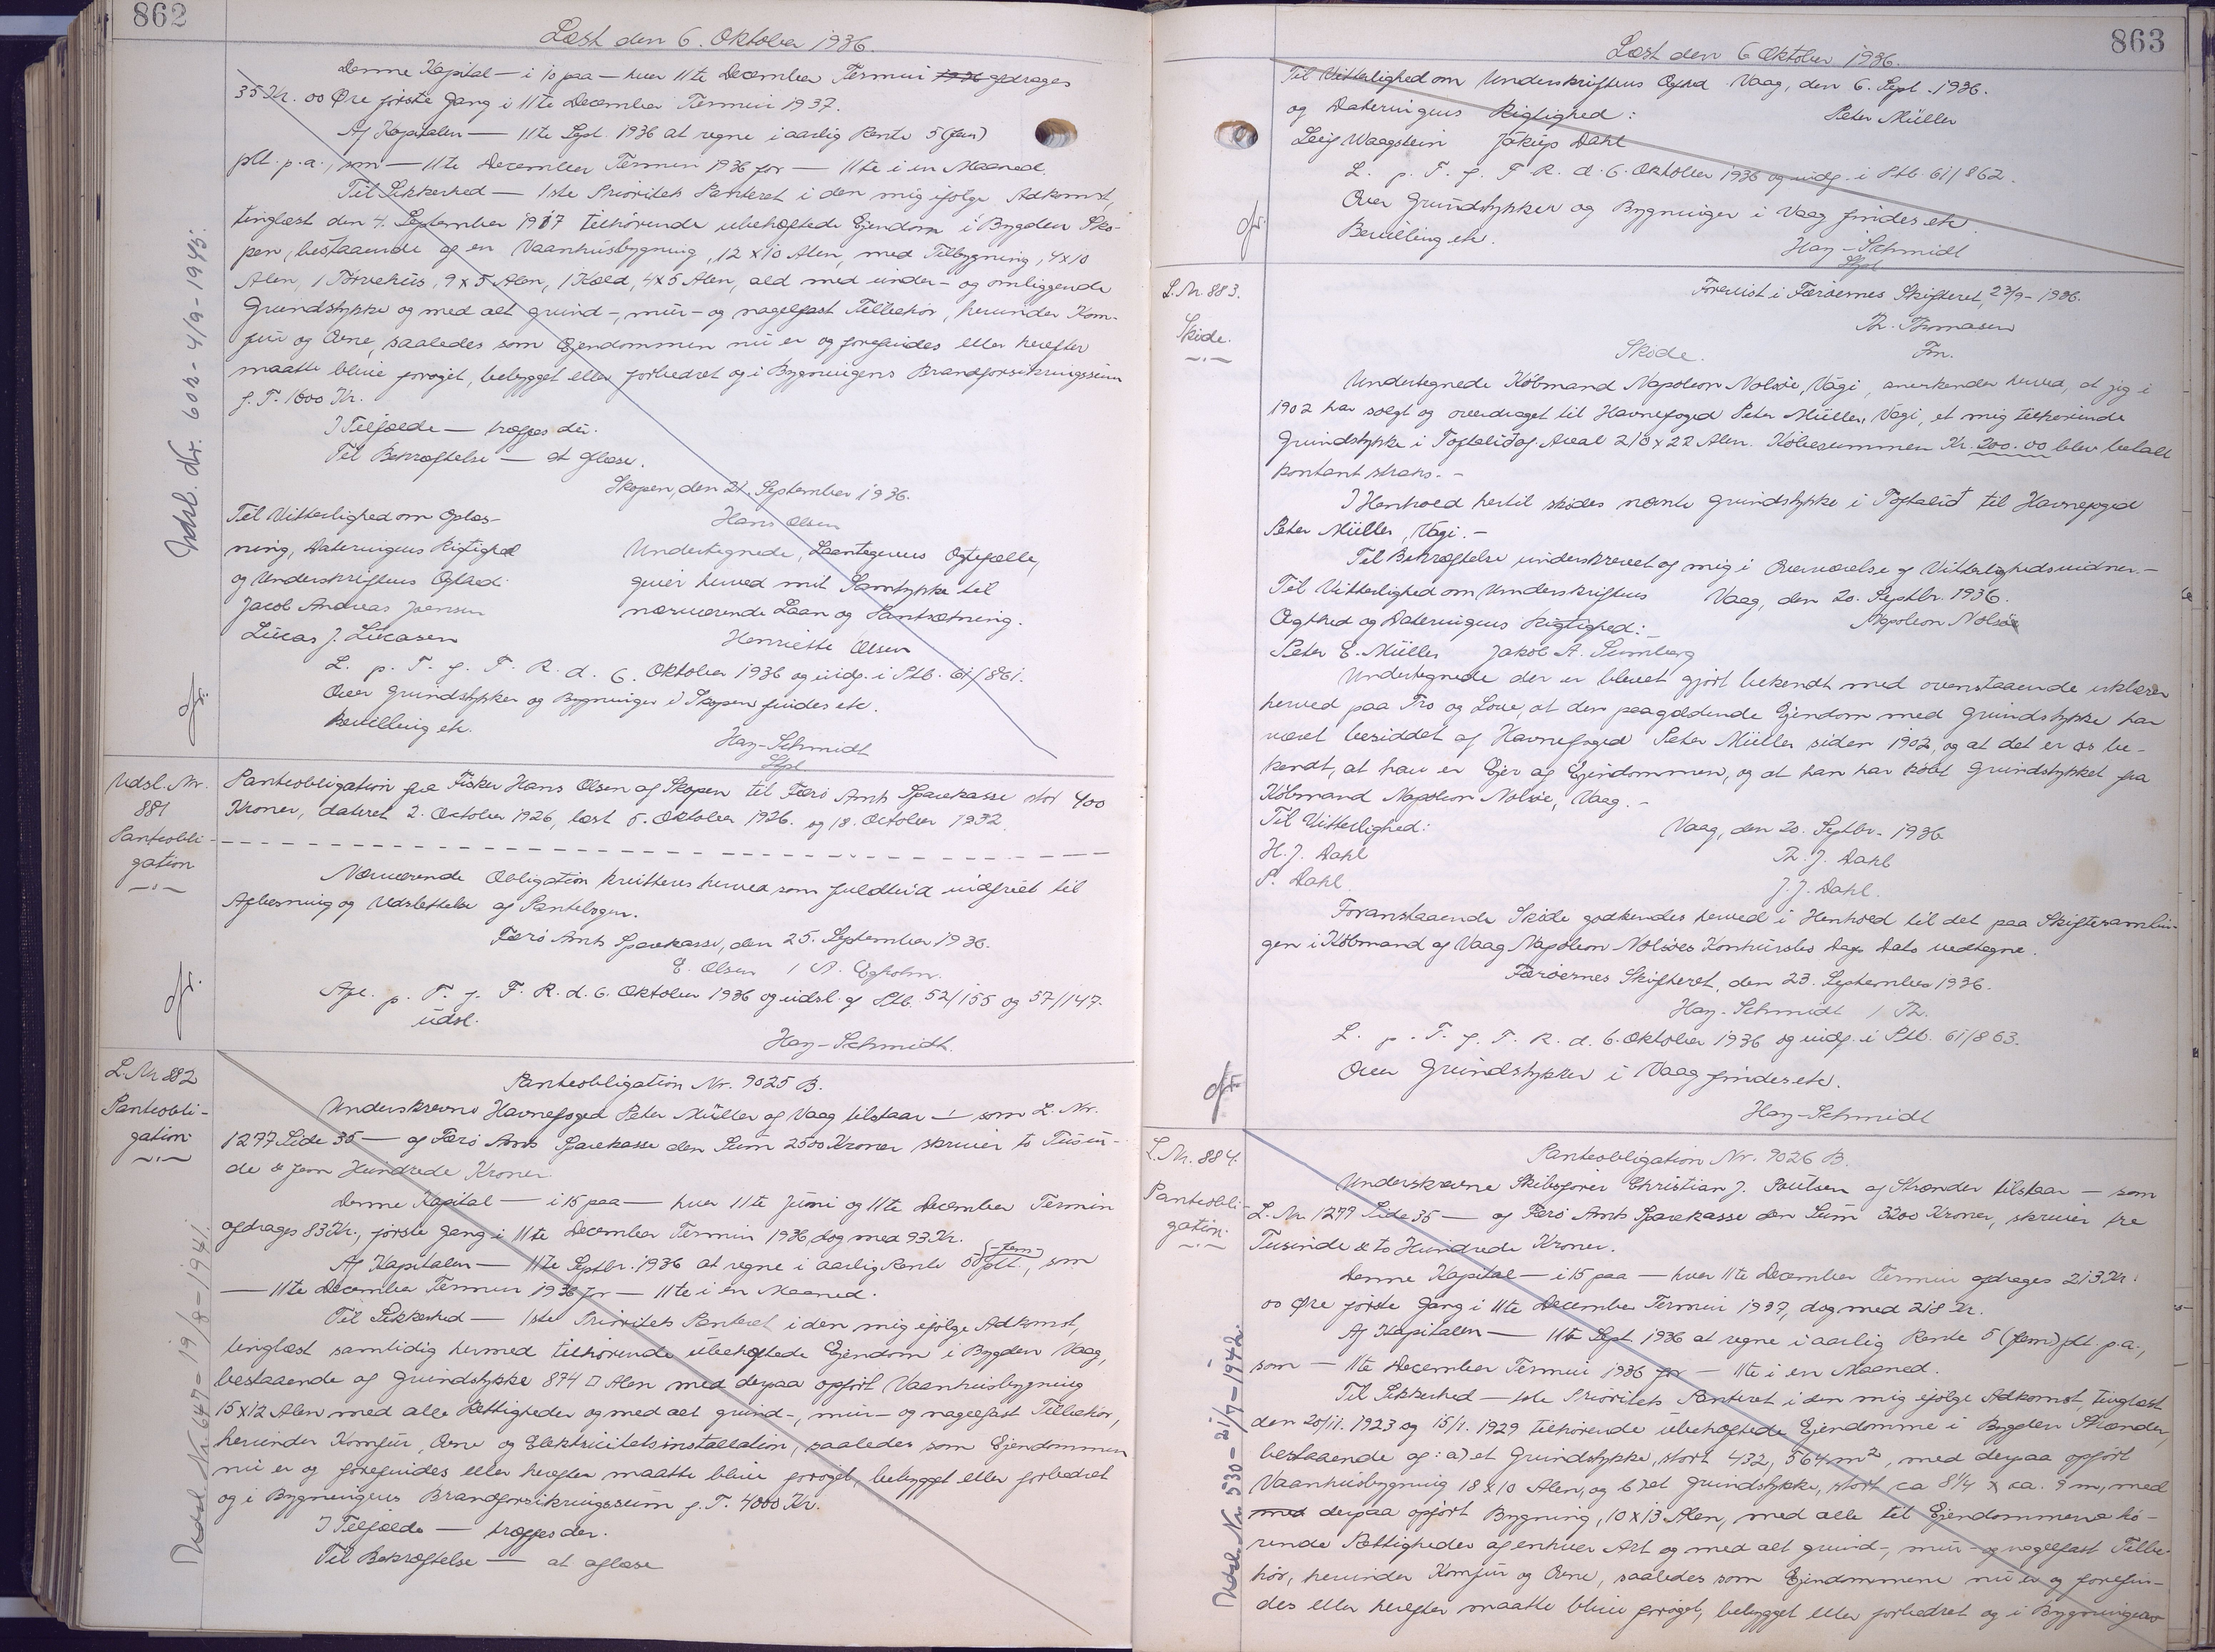 862
Læst den 6. Oktober 1936.
Denne Kapital — i 10 paa — hver 11te December Termin 1936 afdrages
35 Kr. 00 Øre første Gang i 11te December Termin 1937.
Af Kapitalen — 11te Sept. 1936 at regne i aarlig Rente 5 (fem)
pCt. p.a., som — 11te December Termin 1936 for — 11te i en Maaned.
Til Sikkerhed — 1ste Prioritets Panteret i den mig ifølge Adkomst,
tinglæst den 4. September 1917 tilhørende ubehæftede Ejendom i Bygden Sko-
pen, bestaaende af en Vaanhusbygning, 12 x 10 Alen, med Tilbygning, 4x10
Alen, 1 Tørvehus, 9 x 5 Alen, 1 Kæld, 4x5 Alen, ald med under- og omliggende
Grundstykke og med alt grund-, mur- og nagelfast Tilbehør, herunder Kom-
fur og Ovne, saaledes som Ejendommen nu er og forefindes eller herefter
maatte blive forøget, bebygget eller forbedret og i Bygningens Brandforsikringssum
f. T. 1600 Kr.
I Tilfælde — træffes der.
Til Bekræftelse — at aflæse.
Skopen, den 21. September 1936.
Til Vitterlighed om Oplæs-
Hans Olsen
ning, Dateringens Rigtighed
Undertegnede, Laantagerens Ægtefælle,
og Underskriftens Ægthed:
giver herved mit Samtykke til
Jacob Andreas Joensen
nærværende Laan og Pantsætning.
Lucas J. Lucasen
Henriette Olsen
L. p. T. f. F. R. d. 6. Oktober 1936 og indf. i Ptb. 61/861.
Over Grundstykker og Bygninger i Skopen findes etc.
Bevilling etc.
Hay-Schmidt
Stpl
Udsl. Nr. 603 - 4/9 - 1945.
Udsl. Nr.
881
Panteobli-
gation
Panteobligation fra Fisker Hans Olsen af Skopen til Færø Amts Sparekasse stor 400
Kroner, dateret 2. October 1926, læst 5. Oktober 1926. og 18. October 1932.
Nærværende Obligation kvitteres herved som fuldtud indfriet til
Aflæsning og Udslettelse af Pantebogen.
Færø Amts Sparekasse, den 25. September 1936.
E. Olsen / A. Egholm.
Afl. p. T. f. F. R. d. 6. Oktober 1936 og udsl. af Ptb. 52/155 og 57/147.
udsl.
Hay-Schmidt.
L. Nr 882
Panteobli-
gation
Panteobligation Nr. 9025 B.
Underskrevne Havnefoged Peter Müller af Vaag tilstaar — som L. Nr.
1277 Side 35 — af Færø Amts Sparekasse den Sum 2500 Kroner skriver to Tusin-
de & fem Hundrede Kroner
Denne Kapital — i 15 paa — hver 11te Juni og 11te December Termin
afdrages 83 Kr., første Gang i 11te December Termin 1936, dog med 93 Kr.
Af Kapitalen — 11te Septbr. 1936 at regne i aarlig Rente 5 (fem) pCt., som
— 11te December Termin 1936 for — 11te i en Maaned.
Til Sikkerhed — 1ste Prioritets Panteret i den mig ifølge Adkomst,
tinglæst samtidig hermed tilhørende ubehæftede Ejendom i Bygden Vaag,
bestaaende af Grundstykke 874 □ Alen med derpaa opført Vaanhusbygning
15x12 Alen med alle Rettigheder og med alt grund-, mur- og nagelfast Tilbehør,
herunder Komfur, Ovne og Elektricitetsinstallation, saaledes som Ejendommen
nu er og forefindes eller herefter maatte blive forøget, bebygget eller forbedret
og i Bygningens Brandforsikringssum f. T. 4000 Kr.
I Tilfælde — træffes der.
Til Bekræftelse — at aflæse
Udsl. Nr. 647 - 19/8 - 1941.
863
Læst den 6 Oktober 1936.
Til Vitterlighed om Underskriftens Ægthed Vaag, den 6. Sept. 1936.
og Dateringens Rigtighed: Peter Müller
Leif Waagstein Jákup Dahl
L. p. T. f. F. R. d. 6. Oktober 1936 og indf. i Ptb. 61/862.
Over Grundstykker og Bygninger i Vaag findes etc.
Bevilling etc.
Hay-Schmidt
Stpl
L. Nr. 883.
Skøde.
Forevist i Færøernes Skifteret, 23/9 - 1936.
Th. Thomasen
Fm.
Skøde.
Undertegnede Købmand Napoleon Nolsøe, Vági, anerkender herved, at jeg i
1902 har solgt og overdraget til Havnefoged Peter Müller, Vági, et mig tilhørende
Grundstykke i Toftalið af Areal 210 x 22 Alen. Købesummen Kr. 200.00 blev betalt
kontant straks. -
I Henhold hertil skødes nævnte Grundstykke i Toftalið til Havnefoged
Peter Müller, Vági. -
Til Bekræftelse underskrevet af mig i Overværelse af Vitterlighedsvidner. -
Til Vitterlighed om Underskriftens Vaag, den 20. Septbr. 1936.
Ægthed og Dateringens Rigtighed: Napoleon Nolsøe
Peter E. Müller Jakob A. Sumberg
Undertegnede der er blevet gjort bekendt med ovenstaaende erklærer
herved paa Tro og Love, at den paagældende Ejendom med Grundstykke har
været besiddet af Havnefoged Peter Müller siden 1902, og at det er os be-
kendt, at han er Ejer af Ejendommen, og at han har købt Grundstykket fra
Købmand Napoleon Nolsøe, Vaag. -
Til Vitterlighed: Vaag, den 20. Septbr. 1936
H. J. Dahl Th. J. Dahl
P. Dahl. J. J. Dahl.
Foranstaaende Skøde godkendes herved i Henhold til det paa Skiftesamlin-
gen i Købmand af Vaag Napoleon Nolsøes Konkursbo Dags Dato vedtagne.
Færøernes Skifteret, den 23. September 1936.
Hay-Schmidt / Th.
L. p. T. f. F. R. d. 6. Oktober 1936 og indf. i Ptb. 61/863.
Over Grundstykker i Vaag findes etc.
Hay-Schmidt
L. Nr. 884.
Panteobli-
gation.
Panteobligation Nr. 9026 B.
Underskrevne Skibsfører Christian J. Poulsen af Strænder tilstaar — som
L. Nr. 1277 Side 35 — af Færø Amts Sparekasse den Sum 3200 Kroner, skriver tre
Tusinde & to Hundrede Kroner.
Denne Kapital — i 15 paa — hver 11te December Termin afdrages 213 Kr.
00 Øre første Gang i 11te December Termin 1937, dog med 218 Kr.
Af Kapitalen — 11te Sept. 1936 at regne i aarlig Rente 5 (fem) pCt. p.a.,
som — 11te December Termin 1936 for — 11te i en Maaned.
Til Sikkerhed — 1ste Prioritets Panteret i den mig ifølge Adkomst, tinglæst
den 20/11. 1923 og 15/1. 1929 tilhørende ubehæftede Ejendomme i Bygden Strænder,
bestaaende af: a) et Grundstykke, stort 432,564 m², med derpaa opført
Vaanhusbygning 18 x 10 Alen, og b) et Grundstykke, stort ca 8¼ x ca. 9 m, med
med derpaa opført Bygning, 10 x 13 Alen, med alle til Ejendommene hø-
rende Rettigheder af enhver Art og med alt grund-, mur- og nagelfast Tilbe-
hør, herunder Komfur og Ovne, saaledes som Ejendommene nu er og forefin-
des eller herefter maatte blive forøget, bebygget eller forbedret og i Bygningens
Udsl. Nr. 530 - 21/7 - 1942.